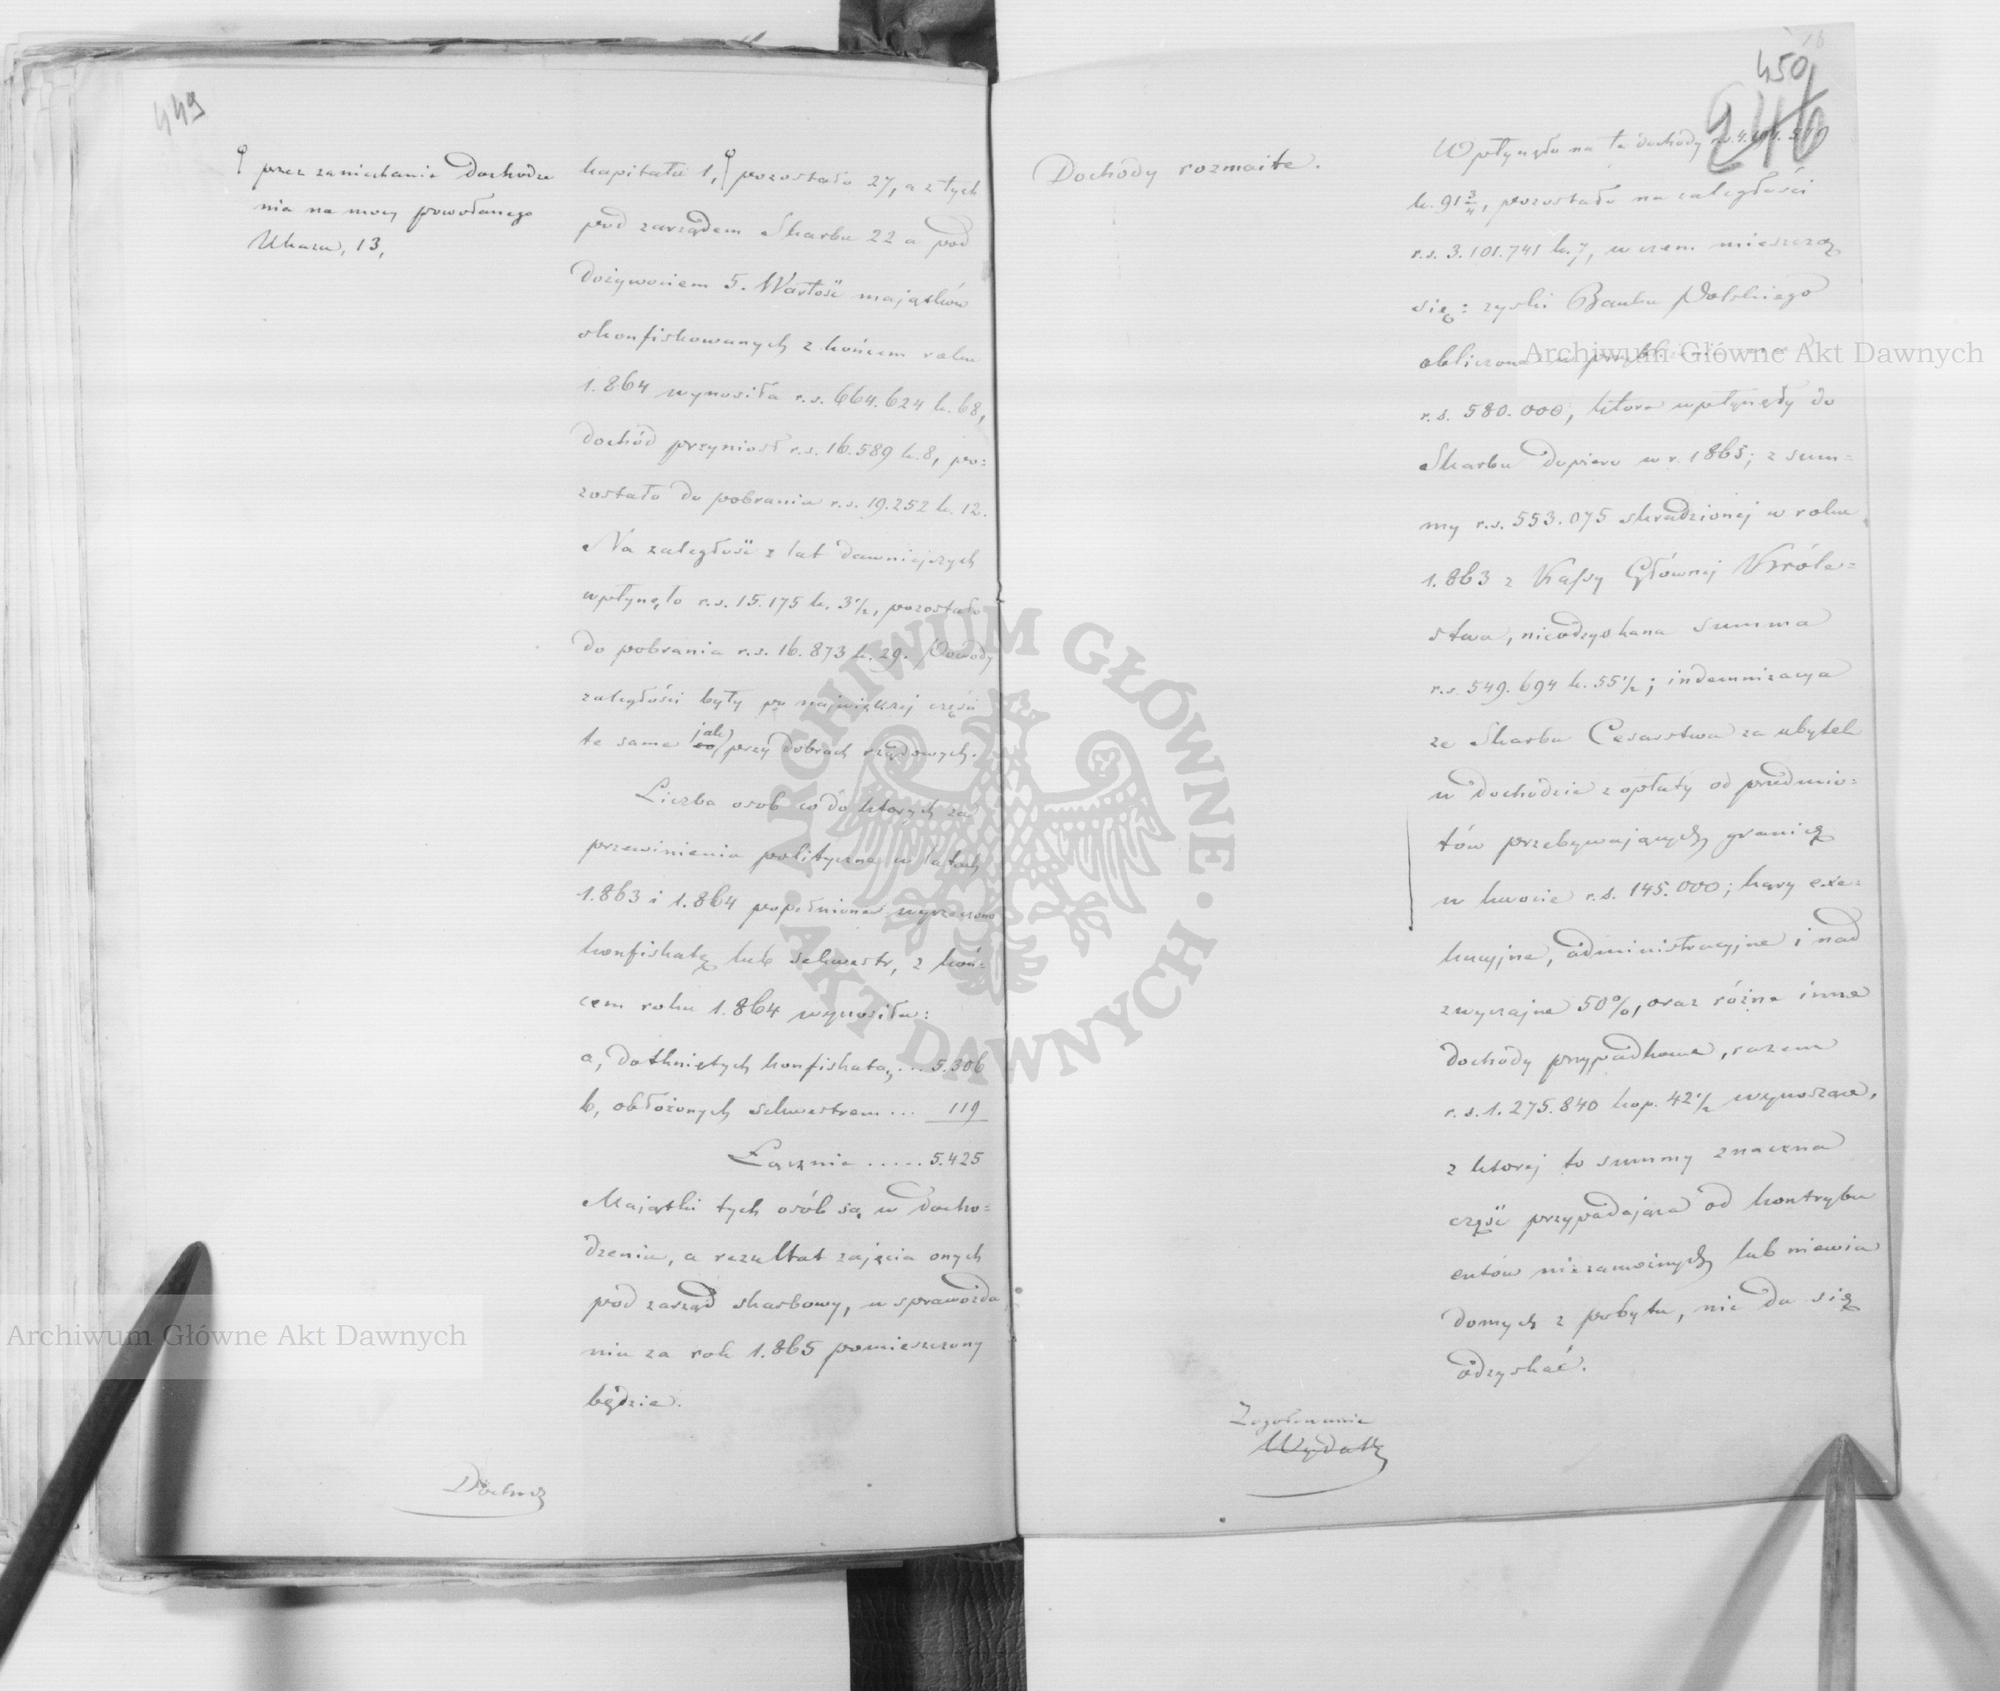 449
przez zaniechanie Dochodze
nia na mocy powołanego
Ukazu, 13,
kapitału 1, pozostało 27, a z tych
pod zarządem Skarbu 22 a pod
dożywociem 5. Wartość majątków
skonfiskowanych z końcem roku
1.864 wynosiła r.s. 664.624 k. 68,
dochód przyniosł r.s. 16.589 k. 8, po=
zostało do pobrania r.s. 19.252 k. 12.
Na zaległość z lat dawniejszych
wpłynęło r.s. 15.175 k. 3½, pozostało
do pobrania r.s. 16.873 k. 29. Powody
zaległości były po największej części
te same jak przy dobrach rządowych.
Liczba osob co do ktorych za
przewinienia polityczne w latach
1.863 i 1.864 popełnione wyrzeczono
konfiskatę lub sekwestr, z koń=
cem roku 1.864 wynosiła:
a, dotkniętych konfiskatą, ... 5.306
b, obłożonych sekwestrem ... 119
Łącznie ..... 5.425
Majątki tych osób są w docho=
dzeniu, a rezultat zajęcia onych
pod zarząd skarbowy, w sprawozda
niu za rok 1.865 pomieszczony
będzie.
450
246
Dochody rozmaite.
Wpłynęło na te dochody r.s.
k. 91¾, pozostało na zaległości
r.s. 3.101.741 k. 7, w czem mieszczą
się: zyski Banku Polskiego
obliczone w
r.s. 580.000, ktore wpłynęły do
Skarbu dopiero w r. 1865; z sum=
my r.s. 553.075 skradzionej w roku
1.863 z Kassy Głównej Króle=
stwa, nieodzyskana summa
r.s. 549.694 k. 55½; indemnizacya
ze Skarbu Cesarstwa za ubytek
w dochodzie z opłaty od przedmio=
tów przebywających granicę
w kwocie r.s. 145.000; kary exe=
kucyjne, administracyjne i nad
zwyczajne 50%, oraz różne inne
dochody przypadkowe, razem
r.s. 1.275.840 kop. 42½ wynoszące,
z ktorej to summy znaczna
część przypadająca od kontrybu
entów niezamożnych lub niewia
domych z pobytu, nie da się
odzyskać.
Wydatki
Archiwum Główne Akt Dawnych
Archiwum Główne Akt Dawnych
ARCHIWUM GŁÓWNE
AKT DAWNYCH